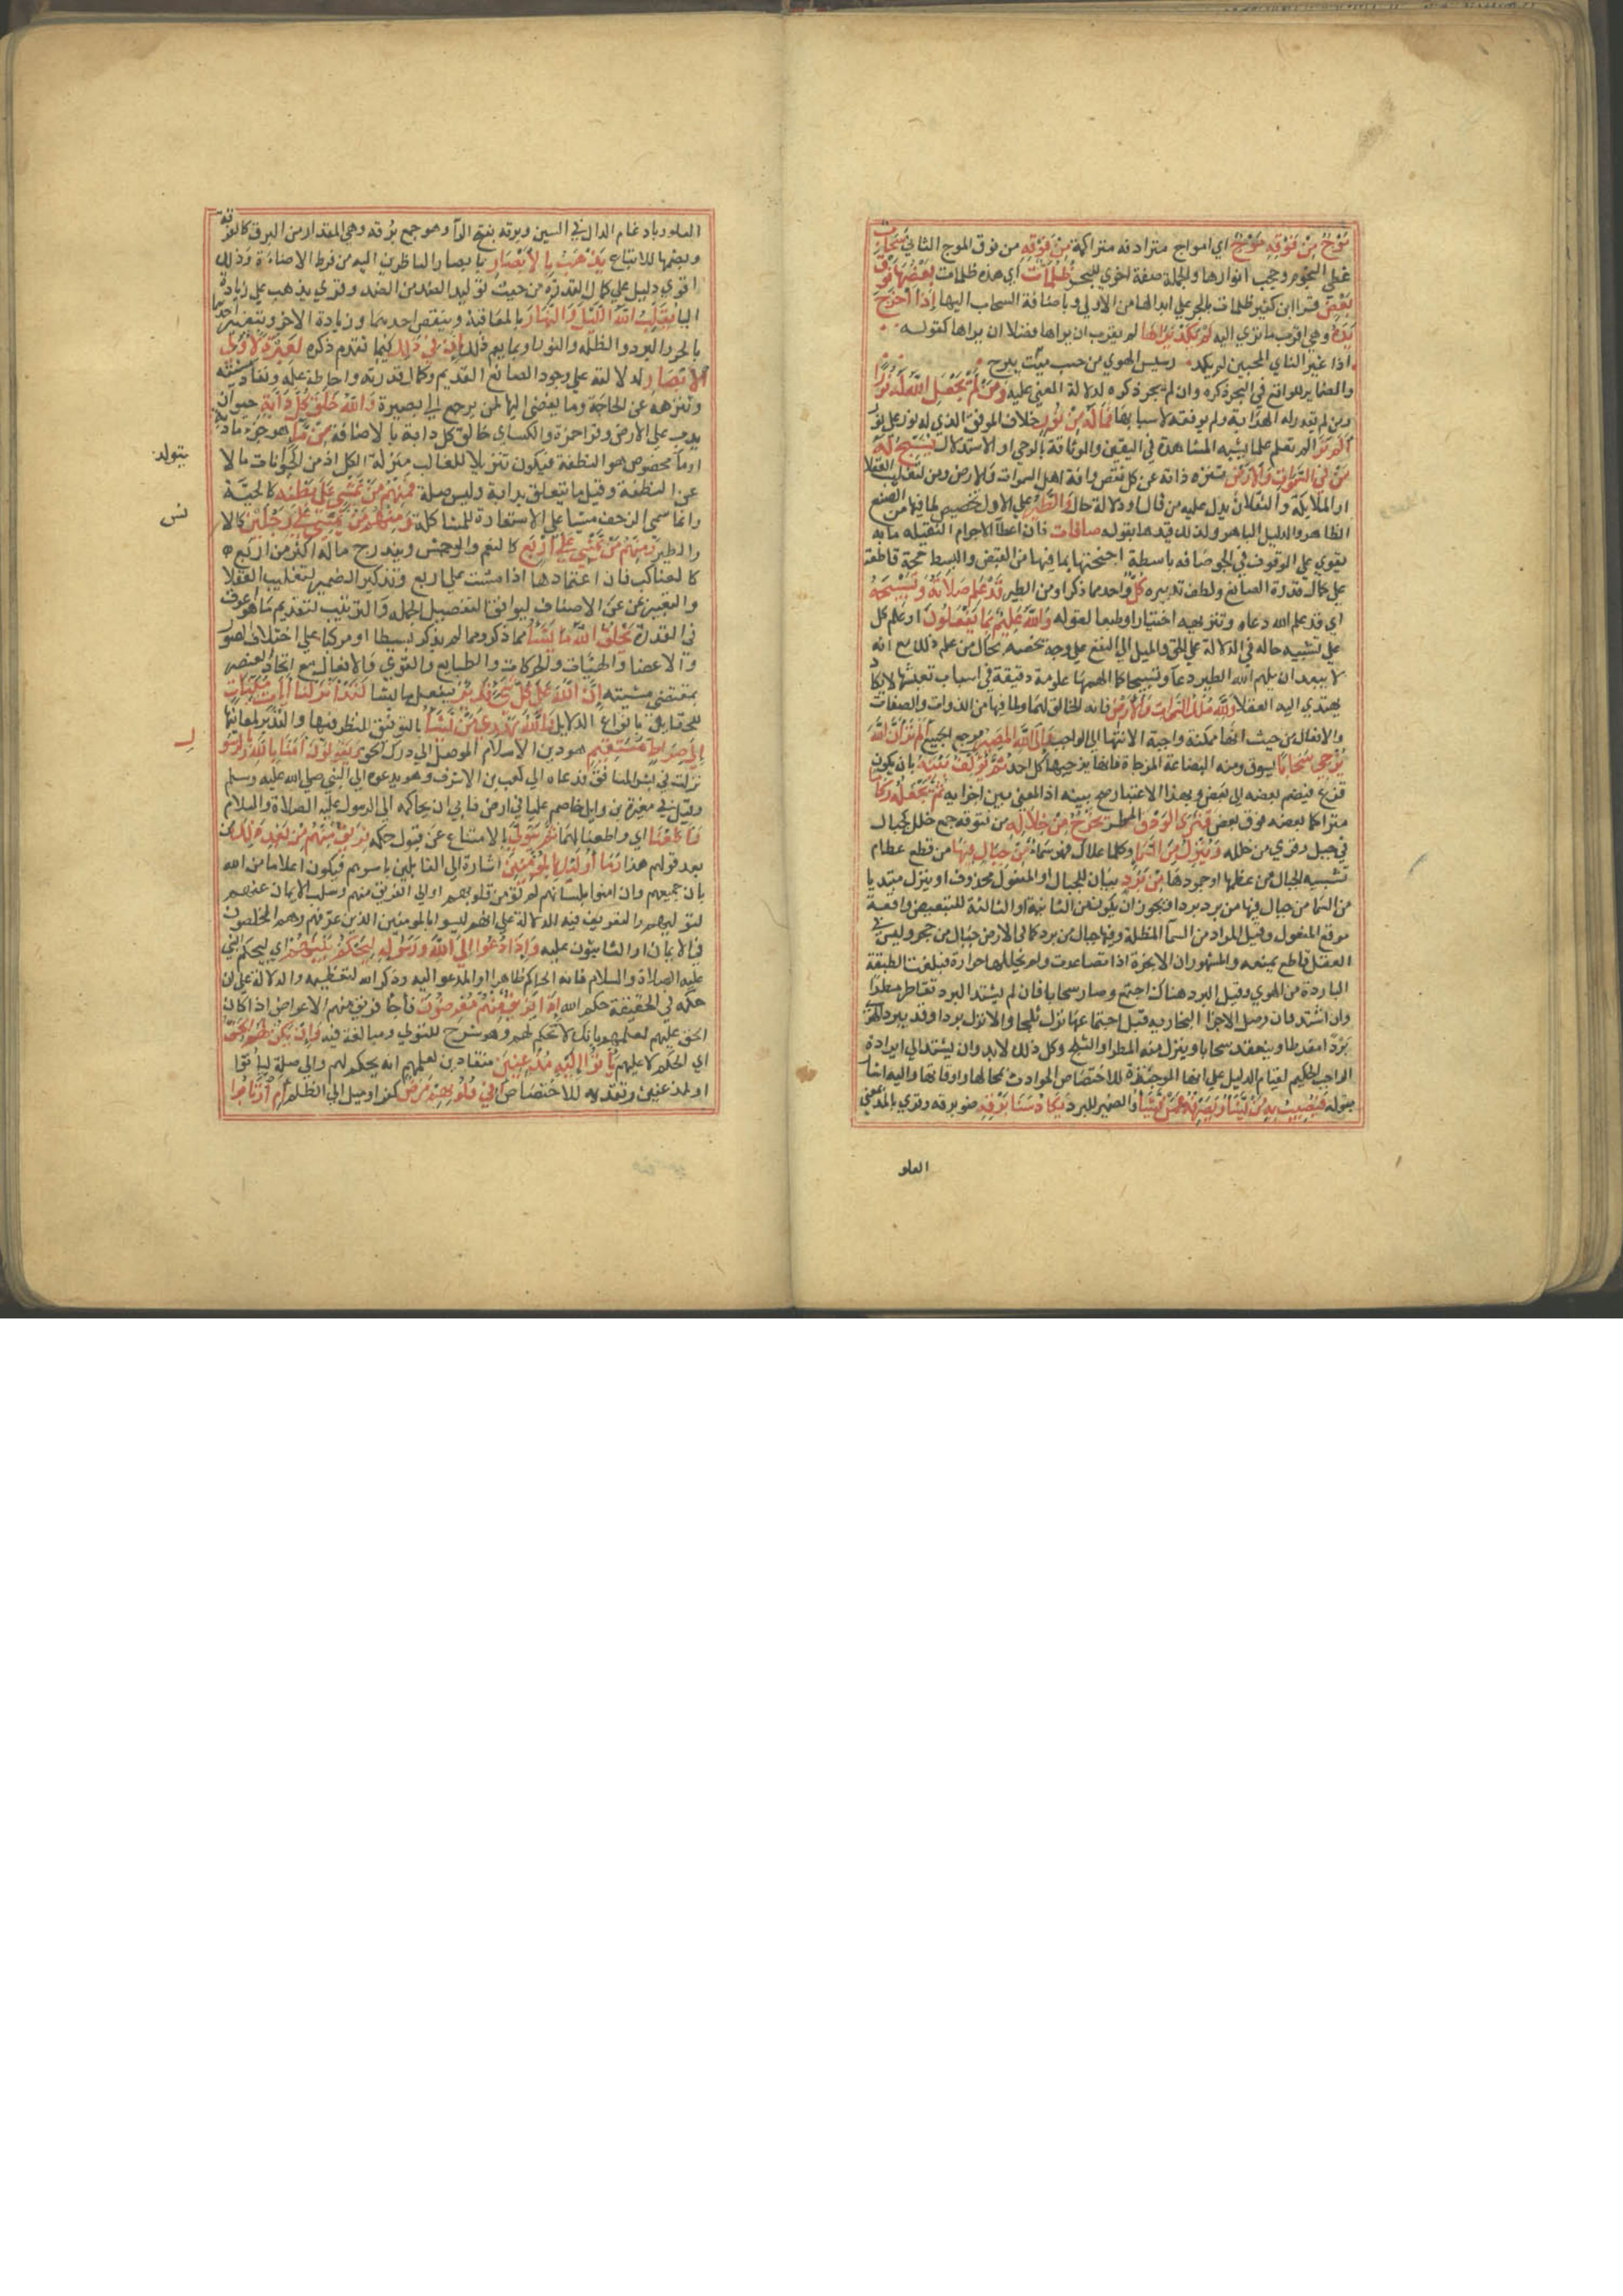 مَوْجٌ مِنْ فَوْقِهِ مَوْجٌ اي امواج مترادفه متراكمة مِنْ فَوْقِهِ من فوق الموج الثاني سَحَابٌ
غطي النجوم وحجب انوارها والجملة صفة اخري للبحر ظُلُمَاتٌ اي هذه ظلمات بَعْضُهَا فَوْقَ
بَعْضٍ وقرا ابن كثير ظلمات بالجر علي ابدالها من الاولي وباضافة السحاب اليها إِذَا أَخْرَجَ
يَدَهُ وهي اقرب ما تري اليه لَمْ يَكَدْ يَرَاهَا لم يقرب ان يراها فضلا ان يراها كقوله
اذا غير الناي المحبين لم يكد رسيس الهوي من حب ميّت يبرح
والضماير للواقع في البحر ذكره وان لم يجر ذكره لدلالة المعني عليه وَمَنْ لَمْ يَجْعَلِ اللَّهُ لَهُ نُورًا
ومن لم يقدر له الهداية ولم يوفقه لاسبابها فَمَا لَهُ مِنْ نُورٍ خلاف الموفق الذي له نور علي نور
أَلَمْ تَرَ الم تعلم علما يشبه المشاهدة في اليقين والوثاقة بالوحي او الاستدلال يُسَبِّحُ لَهُ
مَنْ فِي السَّمَوَاتِ وَالْأَرْضِ ينزه ذاته عن كل نقص وافة اهل السموات والارض ومن لتغليب العقلا
او الملايكة والثقلان بدل عليه من قال او دلالة حال وَالطَّيْرُ علي الاول تخصيص لما فيها من الصنع
الظاهر والدليل الباهر ولذلك قيدها بقوله صَافَّاتٍ فان اعطا الاجرام الثقيلة ما به
يقوي علي الوقوف في الجو صافه باسطة اجنحتها بما فيها من القبض والبسط حجة قاطعة
علي كمال قدرة الصانع ولطف تدبيره كُلٌّ واحد مما ذكر او من الطير قَدْ عَلِمَ صَلَاتَهُ وَتَسْبِيحَهُ
اي قد علم الله دعاه وتنزيهه اختيارا وطبعا لقوله وَاللَّهُ عَلِيمٌ بِمَا يَفْعَلُونَ او علم كل
علي تشبيه حاله في الدلالة علي الحق والميل الي النفع علي وجه تخصه بحال من علم ذلك مع انه
لا يبعد ان يلهم الله الطير دعا وتسبيحا كما الهمها علوما دقيقة في اسباب تعيشها لا تكاد
يهتدي اليه العقلا وَلِلَّهِ مُلْكُ السَّمَوَاتِ وَالْأَرْضِ فانه الخالق لهما ولما فيها من الذوات والصفات
والافعال من حيث انها ممكنة واجبة الانتها الي الواجب وَإِلَى اللَّهِ الْمَصِيرُ مرجع الجميع أَلَمْ تَرَ أَنَّ اللَّهَ
يُزْجِي سَحَابًا يسوق ومنه البضاعة المزجاة فانها يزجيها كل احد ثُمَّ يُؤَلِّفُ بَيْنَهُ بان يكون
قزعا فيضم بعضه الي بعض وبهذا الاعتبار صح بينه اذ المعني بين اجزايه ثُمَّ يَجْعَلُهُ رُكَامًا
متراكما بعضه فوق بعض فَتَرَى الْوَدْقَ المطر يَخْرُجُ مِنْ خِلَالِهِ من فتوقه جمع خلل كجبال
في جبل وقري من خلله وَيُنَزِّلُ مِنَ السَّمَاءِ وكلما علاك فهو سماء مِنْ جِبَالٍ فِيهَا من قطع عظام
تشبيه الجبال من عظمها او جمودها مِنْ بَرَدٍ بيان للجبال او المفعول محذوف او ينزل مبتديا
من السما من جبال فيها من برد بردا ويجوز ان يكون من الثانية او الثالثة للتبعيض واقعة
موقع المفعول وقيل المراد من السمآ المظلة وفيها جبال من برد كما في الارض جبال من حجر وليس في
العقل قاطع يمنعه والمشهور ان الابخرة اذا تصاعدت ولم تحللها حرارة فبلغت الطبقة
الباردة من الهوي وقيل البرد هناك اجتمع وصار سحابا فان لم يشتد البرد تقاطر مطرا
وان اشتد فان وصل الاجزا البخاريه قبل اجتماعها نزل ثلجا والا نزل بردا وقد يبرد الهوا
بردًا مفرطا وينعقد سحابا وينزل منه المطر او الثلج وكل ذلك لابد وان يستند الي ارادة
الواجب الحكيم لقيام الدليل علي انها الموجبة لاختصاص الحوادث بمحالها واوقاتها واليه اشار
بقوله فَيُصِيبُ بِهِ مَنْ يَشَاءُ وَيَصْرِفُهُ عَمَّنْ يَشَاءُ والضمير للبرد يَكَادُ سَنَا بَرْقِهِ ضو برقه وقري بالمد بمعني
العلو
العلو وبادغام الدال في السين وبرقه بفتح الرآ وهو جمع برقه وهي المقدار من البرق كالغرفة
وبضمها للاتباع يَذْهَبُ بِالْأَبْصَارِ بابصار الناظرين اليه من فرط الاضاءة وذلك
اقوي دليل علي كمال القدرة من حيث توليد الضد من الضد وقري يذهب علي زيادة
البا يُقَلِّبُ اللَّهُ اللَّيْلَ وَالنَّهَارَ بالمعاقبة وينقص احدهما وزيادة الاخر وبتغيير احوالهما
بالحر والبرد والظلمة والنور او بما يعم ذلك إِنَّ فِي ذَلِكَ فيما تقدم ذكره لَعِبْرَةً لِأُولِي
الْأَبْصَارِ لدلالة علي وجود الصانع القديم وكمال قدرته واحاطة علمه ونفاذ مشيته
وتنزهه عن الحاجة وما يفضي اليها لمن يرجع الي بصيرة وَاللَّهُ خَلَقَ كُلَّ دَابَّةٍ حيوان
يدب علي الارض وقرا حمزة والكساي خالق كل دابة بالاضافة مِنْ مَاءٍ هو جزء مادته
او مآ مخصوص هو النطفة فيكون تنزيلا للغالب منزلة الكل اذ من الحيوانات ما لا
يتولد
عن النطفة وقيل ما يتعلق بدابة وليس صلة فَمِنْهُمْ مَنْ يَمْشِي عَلَى بَطْنِهِ كالحية
وانما سمي الزحف مشيا علي الاستعارة للمشاكلة وَمِنْهُمْ مَنْ يَمْشِي عَلَى رِجْلَيْنِ كالا
نس
والطير وَمِنْهُمْ مَنْ يَمْشِي عَلَى أَرْبَعٍ كالنعم والوحش ويندرج ما له اكثر من اربع
كالعناكب فان اعتمادها اذا مشت علي اربع وتذكير الضمير لتغليب العقلا
والتعبير عن الاصناف ليوافق التفصيل الجمله والترتيب لتقديم ما هو اعرف
في القدرة يَخْلُقُ اللَّهُ مَا يَشَاءُ مما ذكر ومما لم يذكر بسيطا او مركبا علي اختلاف الصور
والاعضا والهيئات والحركات والطبايع والقوي والافعال مع اتحاد العنصر
بمقتضي مشيته إِنَّ اللَّهَ عَلَى كُلِّ شَيْءٍ قَدِيرٌ فيفعل ما يشا لَقَدْ أَنْزَلْنَا آيَاتٍ مُبَيِّنَاتٍ
للحقايق بانواع الدلايل وَاللَّهُ يَهْدِي مَنْ يَشَاءُ بالتوفيق للنظر فيها والتدبر لمعانيها
إِلَى صِرَاطٍ مُسْتَقِيمٍ هو دين الاسلام الموصل الي درك الحق وَيَقُولُونَ آمَنَّا بِاللَّهِ وَبِالرَّسُو
لِ
نزلت في بشر المنافق ودعاه الي كعب بن الاشرف وهو يدعوه الي النبي صلي الله عليه وسلم
وقيل في مغيرة بن وايل خاصم عليا في ارض فابي ان يحاكمه الي الرسول عليه الصلاة والسلام
وَأَطَعْنَا اي واطعنا لهما ثُمَّ يَتَوَلَّى بالامتناع عن قبول حكمه فَرِيقٌ مِنْهُمْ مِنْ بَعْدِ ذَلِكَ من
بعد قولهم هذا وَمَا أُولَئِكَ بِالْمُؤْمِنِينَ اشارة الي القايلين باسرهم فيكون اعلاما من الله
بان جميعهم وان امنوا بلسانهم لم تؤمن قلوبهم او الي الفريق منهم وسلب الايمان عنهم
لتوليهم والتعريف فيه للدلالة علي انهم ليسوا بالمومنين الذين عرفتهم وهم المخلصون
في الايمان او الثابتون عليه وَإِذَا دُعُوا إِلَى اللَّهِ وَرَسُولِهِ لِيَحْكُمَ بَيْنَهُمْ اي ليحكم النبي
عليه الصلاة والسلام فانه الحاكم ظاهرا والمدعو اليه وذكر الله لتعظيمه والدلالة علي ان
حكمه في الحقيقة حكم الله إِذَا فَرِيقٌ مِنْهُمْ مُعْرِضُونَ فاجا فريق منهم الاعراض اذا كان
الحق عليهم لعلمهم بانك لا تحكم لهم وهو شرح للتولي ومبالغة فيه وَإِنْ يَكُنْ لَهُمُ الْحَقُّ
اي الحكم لا عليهم يَأْتُوا إِلَيْهِ مُذْعِنِينَ منقادين لعلمهم انه يحكم لهم والي صلة لياتوا
او لمذعنين وتقديمه للاختصاص أَفِي قُلُوبِهِمْ مَرَضٌ كفر او ميل الي الظلم أَمِ ارْتَابُوا